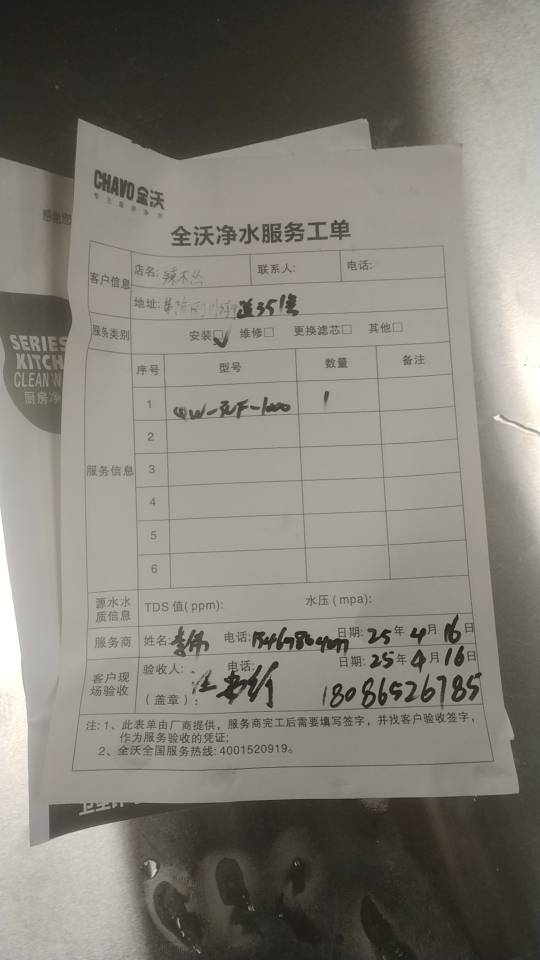 感谢您
CHAVO 全沃
专注富锶净水
全沃净水服务工单
客户信息 店名: 辣木丛 联系人: 电话:
地址: 道351号
服务类别 安装☑ 维修□ 更换滤芯□ 其他□
服务信息 序号 型号 数量 备注
1 QW-RF-1000 1
2
3
4
5
6
源水水质信息 TDS 值(ppm): 水压(mpa):
服务商 姓名: 李伟 电话: 日期: 25年4月16日
客户现场验收 验收人: 电话: 日期: 25年4月16日
(盖章): 18086526785
注: 1、此表单由厂商提供,服务商完工后需要填写签字,并找客户验收签字,
作为服务验收的凭证;
2、全沃全国服务热线: 4001520919。
SERIES
KITCH
CLEAN W
厨房净